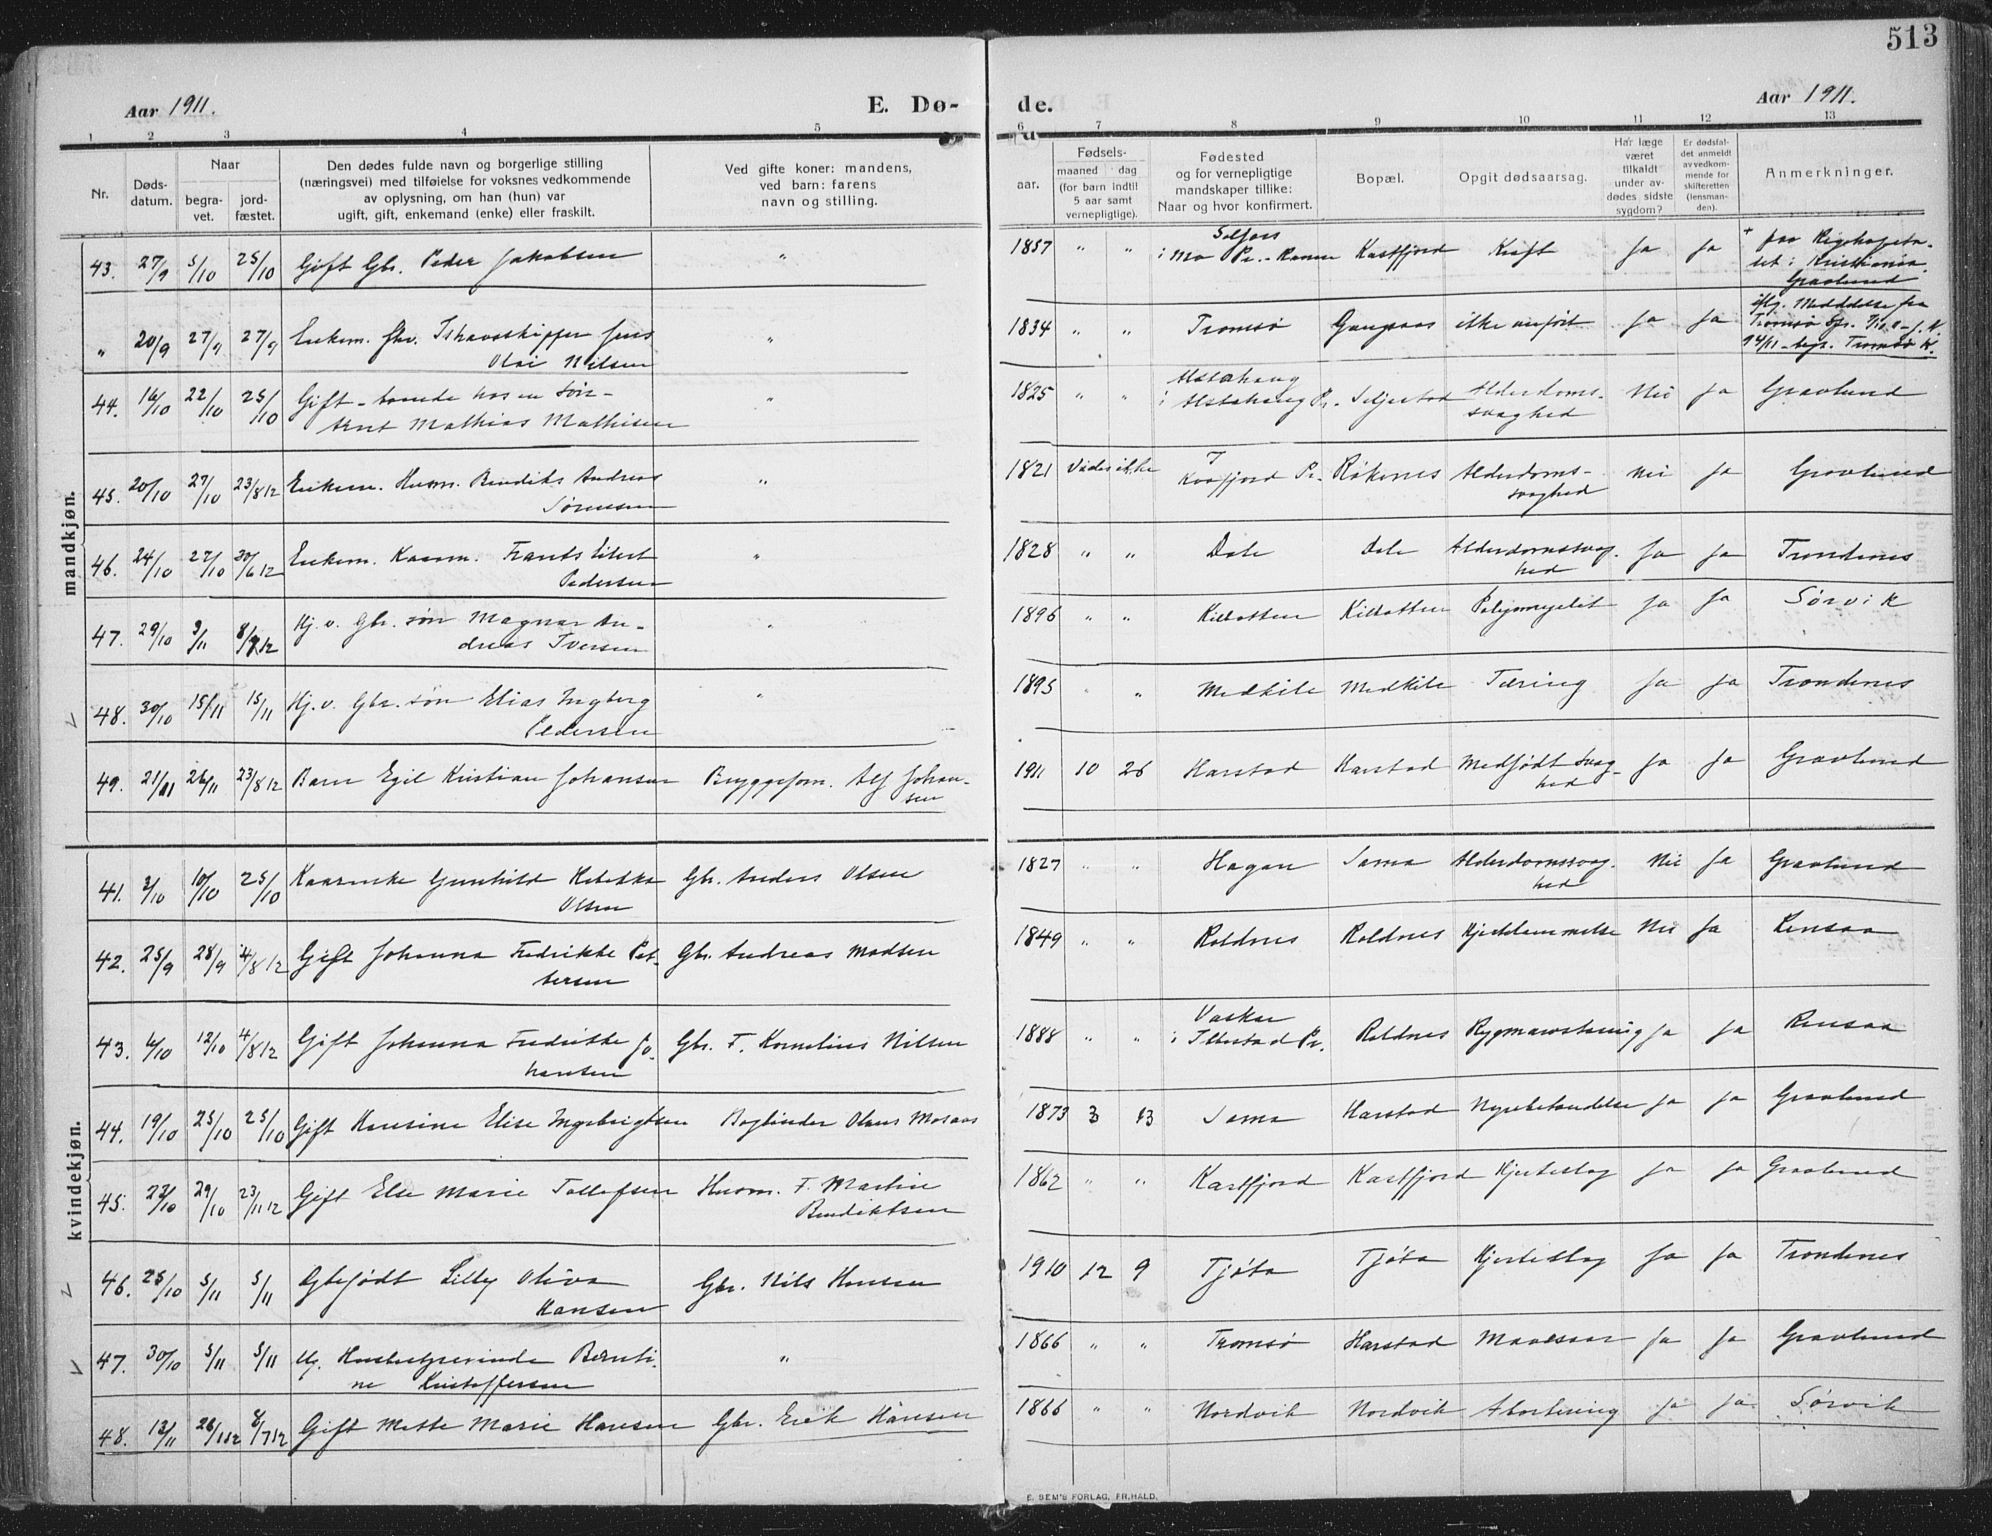 513
Aar 1911. E. Dø- de. Aar 1911.
1 2 3 4 5 6 7 8 9 10 11 12 13
Nr. Døds-datum. Naar begra-vet. jord-fæstet. Den dødes fulde navn og borgerlige stilling (næringsvei) med tilføielse for voksnes vedkommende av oplysning, om han (hun) var ugift, gift, enkemand (enke) eller fraskilt. Ved gifte koner: mandens, ved barn: farens navn og stilling. aar. Fødsels- maaned dag (for barn indtil 5 aar samt vernepligtige). Fødested og for vernepligtige mandskaper tillike: Naar og hvor konfirmert. Bopæl. Opgit dødsaarsag. Har læge været tilkaldt under av-dødes sidste sygdom? Er dødsfal-det anmeldt av vedkom-mende for skifteretten (lensman-den). Anmerkninger.
mandkjøn.
43. 27/9 5/10 25/10 Gift Gbr. Peder Jakobsen " 1857 " " i Mo Pr. - Ranen Kasfjord Kræft Ja Ja + paa Rigshospita-
let i Kristiania.
Gravlund
" 20/9 27/9 27/9 Enkem. fhv. Ishavsskipper Jens 1834 " " Tromsø Gangsaas ikke anført Ja Ja iflg. Meddelelse fra
Olai Nilsen Tromsø
44. 16/10 22/10 25/10 Gift - boende hos en søn - " 1825 " " Alstahaug
i Alstahaug Pr. Seljestad Alderdoms- Nei Ja Gravlund
Arnt Mathias Mathisen svaghed
45. 20/10 27/10 23/8 12 Enkem. Husm. Bendiks Andreas " 1821 Vides ikke Kvæfjord Pr. Røkenes Alderdoms- Nei Ja Gravlund
Sørensen svaghed
46. 24/10 27/10 30/6 12 Enkem. Kaarm. Frants Eilert " 1828 " " Dale Dale Alderdomssvag- Ja Ja Trondenes
Pedersen hed
47. 29/10 3/11 8/7 12 Hj. v. Gbr. søn Magnar An- " 1896 " " Kilbotten Kilbotten Ja Ja Sørvik
dreas Iversen
48. 30/10 15/11 15/11 Hj. v. Gbr. søn Elias Ingberg " 1895 " " Medkile Medkile Tæring Ja Ja Trondenes
Pedersen
49. 21/11 26/11 23/8 12 Barn Egil Kristian Johansen Bryggeform. Alf Johan- 1911 10 26 Harstad Harstad Medfødt svag- Ja Ja Gravlund
sen hed
kvindekjøn.
41. 3/10 10/10 25/10 Gunhild Rebekka Gbr. Anders Olsen 1827 " " Hagan Sama Alderdomssvag- Nei Ja Gravlund
Olsen hed
42. 25/9 28/9 4/8 12 Gift Johanna Fredrikke Pet- Gbr. Andreas Madsen 1849 " " Roldnes Roldnes Hjertelammelse Nei Ja Rensaa
tersen
43. 6/10 12/10 4/8 12 Gift Johanna Fredrikke Jo- Gbr. F. Kornelius Nilsen 1888 " " i Ibestad Pr. Roldnes Rygmarvstæring Ja Ja Rensaa
hansen
44. 19/10 25/10 25/10 Gift Hansine Elise Ingebrigtsen Bogbinder Olaus Mosaas 1873 3 13 Sama Harstad Nyrebetændelse Ja Ja Gravlund
45. 22/10 29/10 23/11 12 Gift Else Marie Tollefsen Husm. F. Martin 1862 " " Kasfjord Kasfjord Hjerteslag Ja Ja Gravlund
Bendiktsen
46. 25/10 5/11 5/11 Lilly Oliva Gbr. Nils Hansen 1910 12 9 Tjøta Tjøta Hjerteslag Ja Ja Trondenes
Hansen
47. 30/10 5/11 5/11 Ug. Husbestyrerinde Bernti- " 1866 " " Tromsø Harstad Mavesaar Ja Ja Gravlund
ne Kristoffersen
48. 13/11 26/11 12 8/7 12 Gift Mette Marie Hansen Gbr. Erik Hansen 1866 " " Nordvik Nordvik Abortering Ja Ja Sørvik
E. SEM'S FORLAG, FR.HALD.